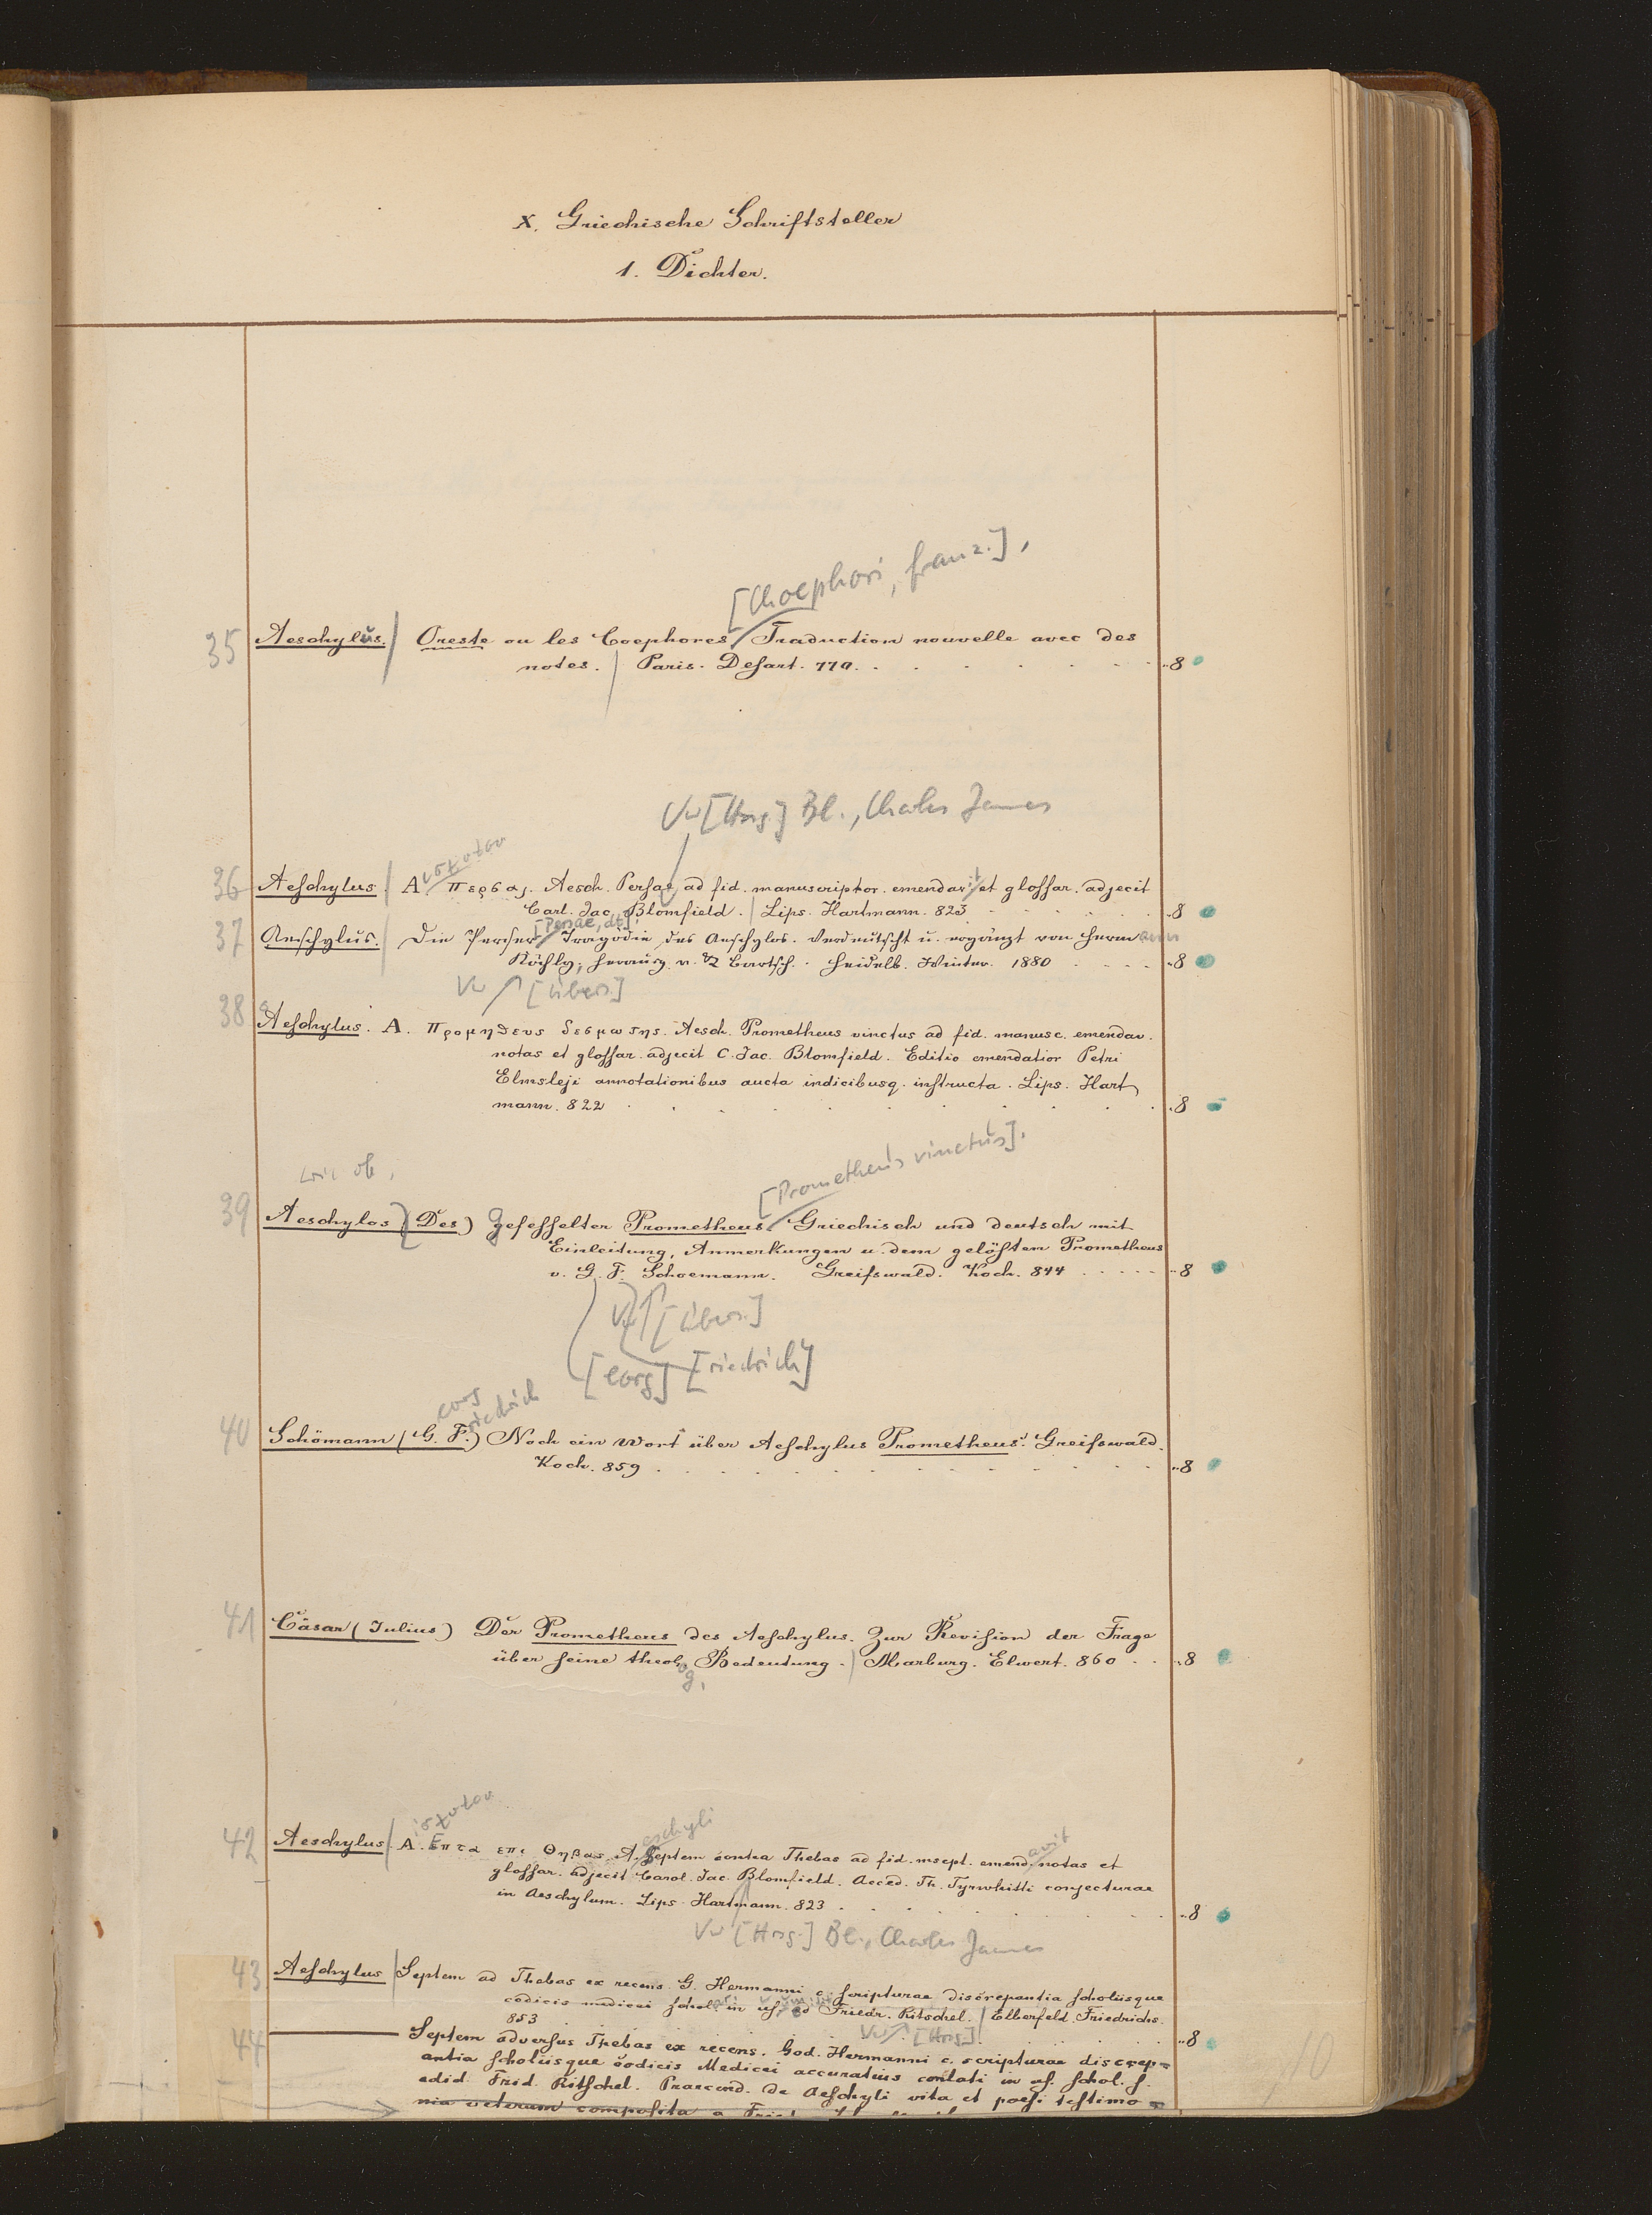 X. Griechische Schriftsteller
1. Dichter.
[Choephori, franz.],
35 Aeschylus. Oreste ou les Coephores Traduction nouvelle avec des
notes. Paris. Desart. 770. 8
Vw [Hrsg.] Bl., Charles James
ισχυλου
36 Aeschylus. A. Περσαι. Aesch. Persae ad fid. manuscriptor. emendavit et glossar. adjecit
Carl. Jac. Blomfield. Lips. Hartmann. 823 8
[Persae, dt.]
37 Aeschylus. Die Perser Tragödie des Aeschylos. Verdeutscht u. ergänzt von Hermann
Köchly, herausg. v. K Bartsch. Heidelb. Winter. 1880 8
Vw [Übers.]
38 Aeschylus. A. Προμηθευς δεσμωτης. Aesch. Prometheus vinctus ad fid. manusc. emendav.
notas et glossar. adjecit C. Jac. Blomfield. Editio emendatior Petri
Elmsleji annotationibus aucta indicibusq. instructa. Lips. Hart
mann. 822 8
[Prometheus vinctus].
39 Aeschylos (Des) gefesselter Prometheus Griechisch und deutsch mit
Einleitung, Anmerkungen u. dem gelösten Prometheus
v. G. F. Schoemann. Greifswald. Koch. 844 8
Vw [Übers.]
[eorg] [riedrich]
eorg
riedrich
40 Schömann (G. F.) Noch ein Wort über Aeschylus Prometheus. Greifswald.
Koch. 859 8
41 Cäsar (Julius) Der Prometheus des Aeschylus. Zur Revision der Frage
über seine theolog. Bedeutung. Marburg. Elwert. 860 8
ισχυλου
eschyli
avit
42 Aeschylus. A. Επτα επι Θηβας A. Septem contra Thebas ad fid. mscpt. emend. notas et
glossar. adjecit Carol. Jac. Blomfield. Acced. Th. Tyrwhitti conjecturae
in Aeschylum. Lips. Hartmann. 823 8
Vw [Hrsg.] Bl., Charles James
43 Aeschylus Septem ad Thebas ex recens. G. Hermanni c. scripturae discrepantia scholiisque
codicis medicei schol. in us. ed Friedr. Ritschel. Elberfeld. Friedrichs.
853 8
Vw [Hrsg.]
44 Septem adversus Thebas ex recens. God. Hermanni c. scripturae discrep=
antia scholiisque codicis Medicei accuratius conlati in us. schol. s.
edid. Frid. Ritschel. Praecend. de Aeschyli vita et poesi testimo=
nia veterum composita a
10